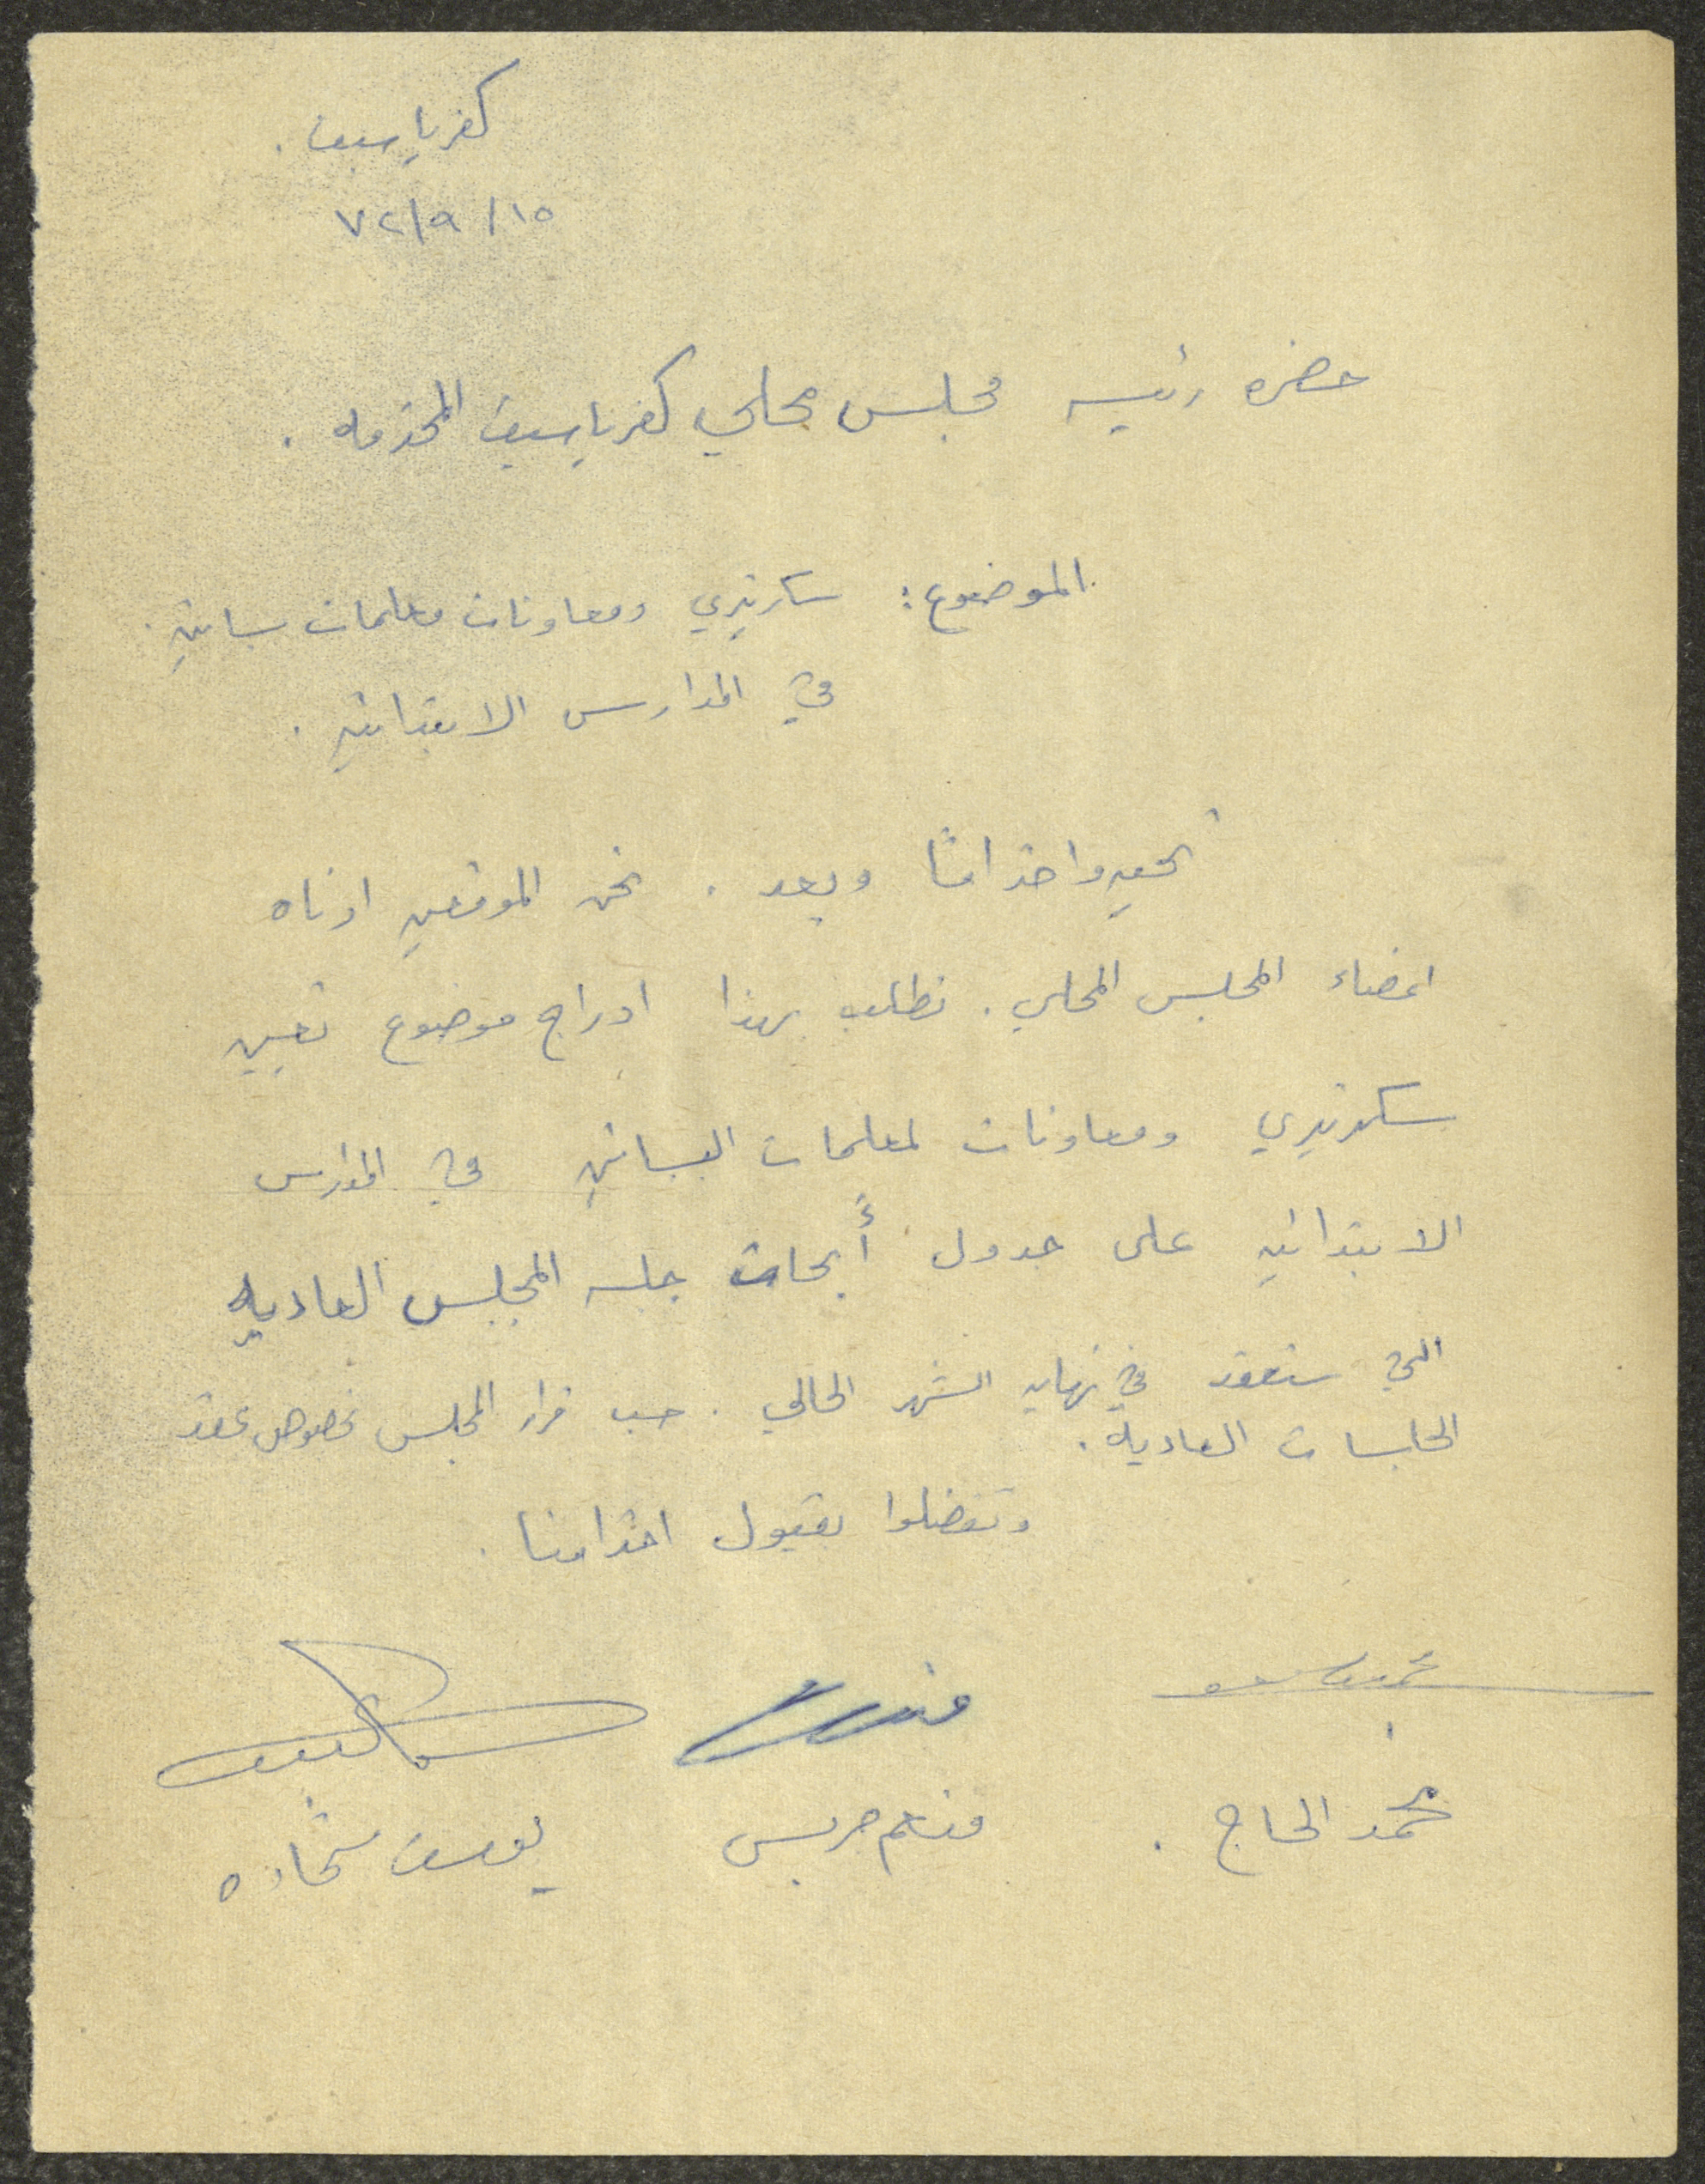 كفرياسيف .
١٥/٩/٧٢
حضرة رئيس مجلس محلي كفرياسيف المحترم .
الموضوع : سكرتيري ومعاونات معلمات بساتين
في المدارس الابتدائيه .
تحيه واحترامًا وبعد . نحن الموقعين ادناه
اعضاء المجلس المحلي . نطلب بهذا ادراج موضوع تعيين
سكرتيري ومعاونات لمعلمات البساتين في المدارس
الابتدائيه على جدول أبحاث جلسه المجلس العاديه
التي ستعقد في نهايه الشهر الحالي . حسب قرار المجلس بخصوص عقد
الجلسات العاديه .
وتفضلوا بقبول احترامنا .
محمد الحاج . منعم جريس يوسف شحاده